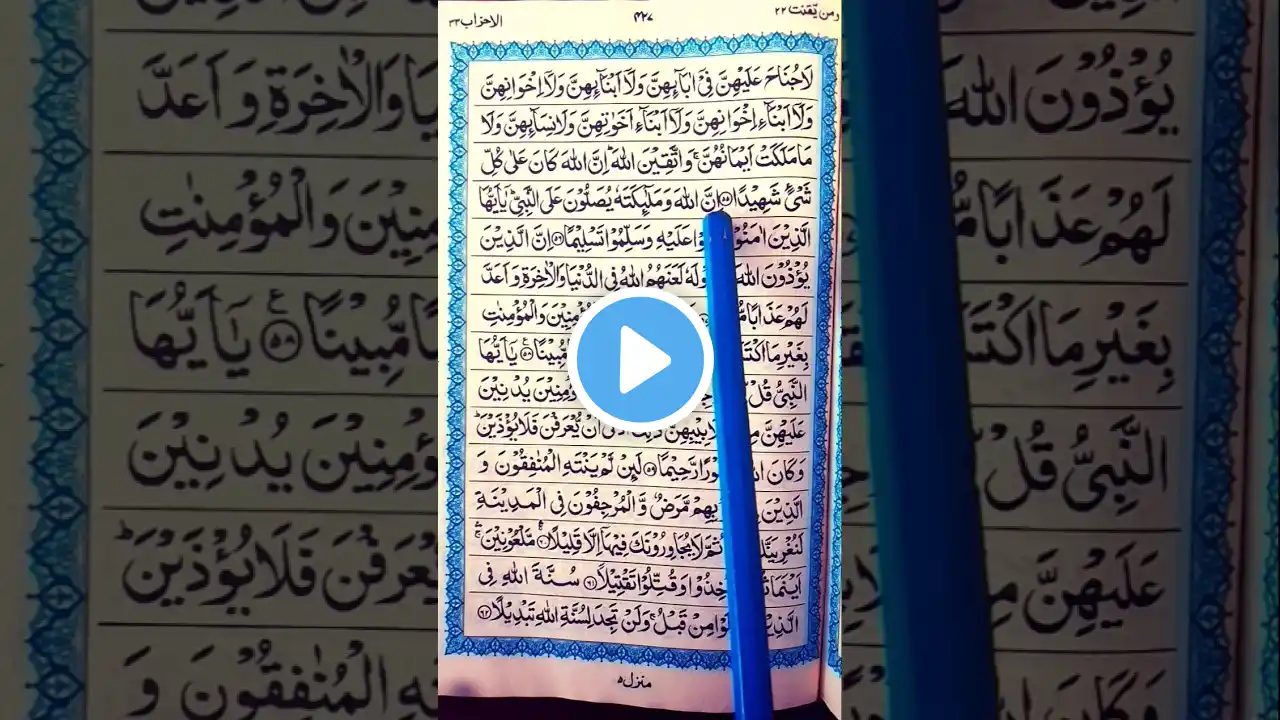 ومن يّقنت ٢٢
٤٢٧
الاحزاب ٣٣
لَاجُنَاحَ عَلَيْهِنَّ فِيْٓ اٰبَآئِهِنَّ وَلَآ اَبْنَآئِهِنَّ وَلَآ اِخْوَانِهِنَّ
وَلَآ اَبْنَآءِ اِخْوَانِهِنَّ وَلَآ اَبْنَآءِ اَخَوٰتِهِنَّ وَلَانِسَآئِهِنَّ وَلَا
مَا مَلَكَتْ اَيْمَانُهُنَّ ۚ وَاتَّقِيْنَ اللّٰهَ ؕ اِنَّ اللّٰهَ كَانَ عَلٰى كُلِّ
شَيْءٍ شَهِيْدًا ﴿٥٥﴾ اِنَّ اللّٰهَ وَمَلٰٓئِكَتَهٗ يُصَلُّوْنَ عَلَى النَّبِيِّ ؕ يٰٓاَيُّهَا
الَّذِيْنَ اٰمَنُوْا عَلَيْهِ وَسَلِّمُوْا تَسْلِيْمًا ﴿٥٦﴾ اِنَّ الَّذِيْنَ
يُؤْذُوْنَ اللّٰهَ لَعَنَهُمُ اللّٰهُ فِي الدُّنْيَا وَالْاٰخِرَةِ وَ اَعَدَّ
لَهُمْ عَذَابًا الْمُؤْمِنِيْنَ وَالْمُؤْمِنٰتِ
بِغَيْرِ مَا مُّبِيْنًا ﴿٥٨﴾ يٰٓاَيُّهَا
النَّبِيُّ قُلْ يُدْنِيْنَ
عَلَيْهِنَّ اَنْ يُّعْرَفْنَ فَلَا يُؤْذَيْنَ ؕ
وَكَانَ رَّحِيْمًا ﴿٥٩﴾ لَئِنْ لَّمْ يَنْتَهِ الْمُنٰفِقُوْنَ وَ
الَّذِيْنَ مَّرَضٌ وَّالْمُرْجِفُوْنَ فِي الْمَدِيْنَةِ
ثُمَّ لَا يُجَاوِرُوْنَكَ فِيْهَآ اِلَّا قَلِيْلًا ﴿٦٠﴾ مَّلْعُوْنِيْنَ ۚ
وَقُتِّلُوْا تَقْتِيْلًا ﴿٦١﴾ سُنَّةَ اللّٰهِ فِي
مِنْ قَبْلُ ۚ وَلَنْ تَجِدَ لِسُنَّةِ اللّٰهِ تَبْدِيْلًا ﴿٦٢﴾
منزل ٥